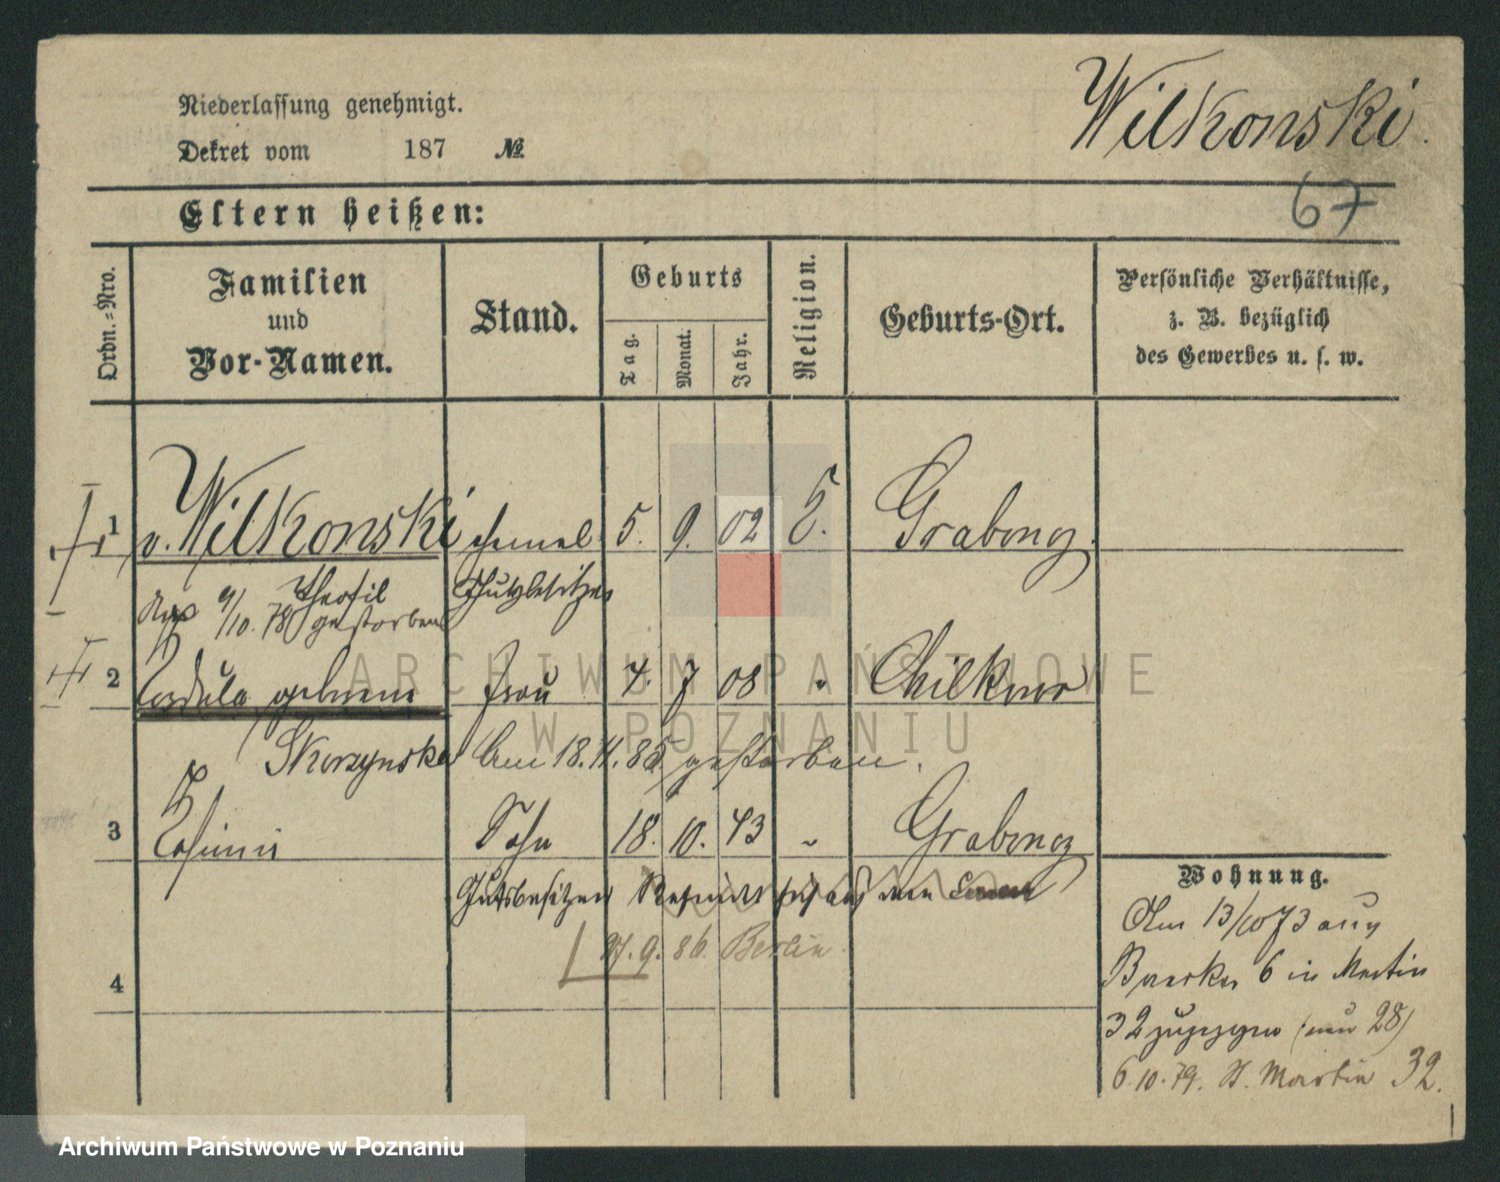 Niederlassung genehmigt.
Dekret vom 187 №
Wilkonski.
67
Eltern heißen:
Ordn.-Nro.
Familien und Vor-Namen.
Stand.
Geburts
Tag.
Monat.
Jahr.
Religion.
Geburts-Ort.
Persönliche Verhältnisse,
z. B. bezüglich
des Gewerbes u. s. w.
1 v. Wilkonski 5. 9. 02
Theofil
9/10. 78 gestorben
2 Cordula geborene Frau 4. 7 08 "
Skorzynska Am 18. 11. 85 gestorben.
3 Casimir Sohn 18. 10. 43 "
Gutsbesitzer
27. 9. 86. Berlin
4
Wohnung.
Am 13/10 73 aus
6 in Martin
32 zugezogen (nun 28)
6. 10. 79. St. Martin 32.
ARCHIWUM PAŃSTWOWE
W POZNANIU
Archiwum Państwowe w Poznaniu